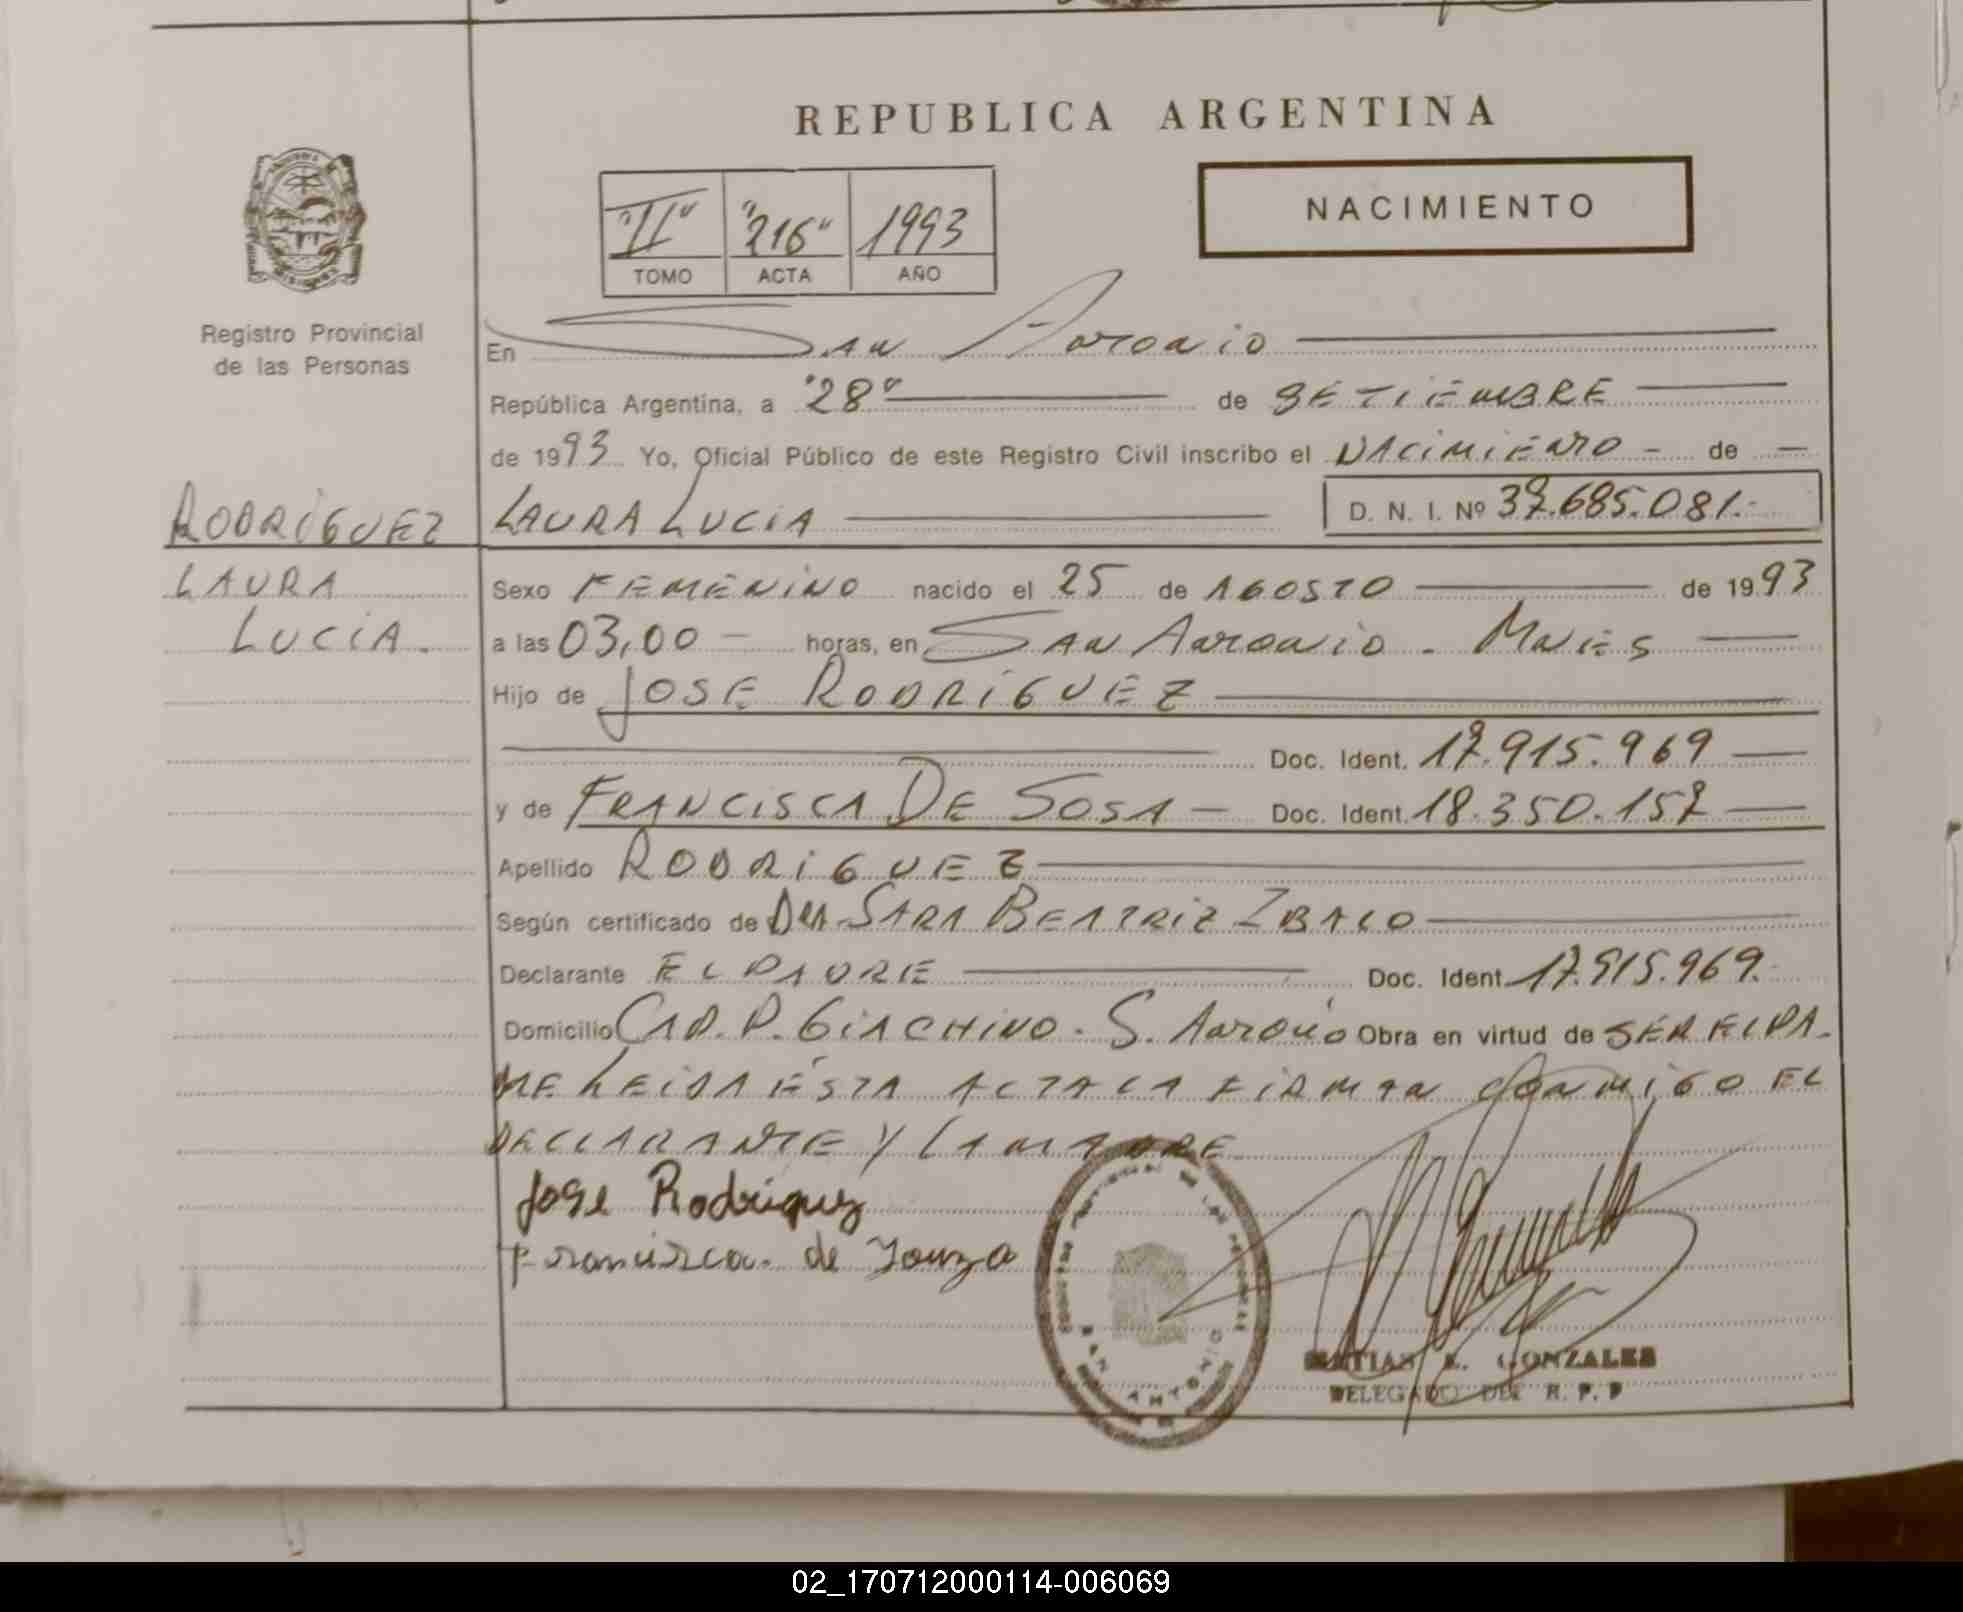 REPUBLICA ARGENTINA
NACIMIENTO
"II" "216" 1993
TOMO ACTA AÑO
Registro Provincial
de las Personas
En SAN ANTONIO
República Argentina, a "28" de SETIEMBRE
de 1993 Yo, Oficial Público de este Registro Civil inscribo el NACIMIENTO - de -
RODRÍGUEZ
LAURA LUCIA
D. N. I. Nº 37.685.081.-
LAURA
LUCIA.
Sexo FEMENINO nacido el 25 de AGOSTO de 1993
a las 03,00 - horas, en SAN ANTONIO - MNES
Hijo de JOSE RODRÍGUEZ
Doc. Ident. 17.915.969
y de FRANCISCA DE SOSA - Doc. Ident. 18.350.157
Apellido RODRIGUEZ
Según certificado de DRA SARA BEATRIZ
Declarante EL PADRE Doc. Ident. 17.915.969.-
Domicilio CAP. P. GIACHINO - S. ANTONIO Obra en virtud de SER EL PA-
DRE LEIDA ÉSTA ACTA LA FIRMAN CONMIGO EL
DECLARANTE Y LA MADRE
Jose Rodriguez
Francisca. de Souza
SAN ANTONIO
MATIAS GONZALES
DELEGADO DEL R. P. P
02_170712000114-006069